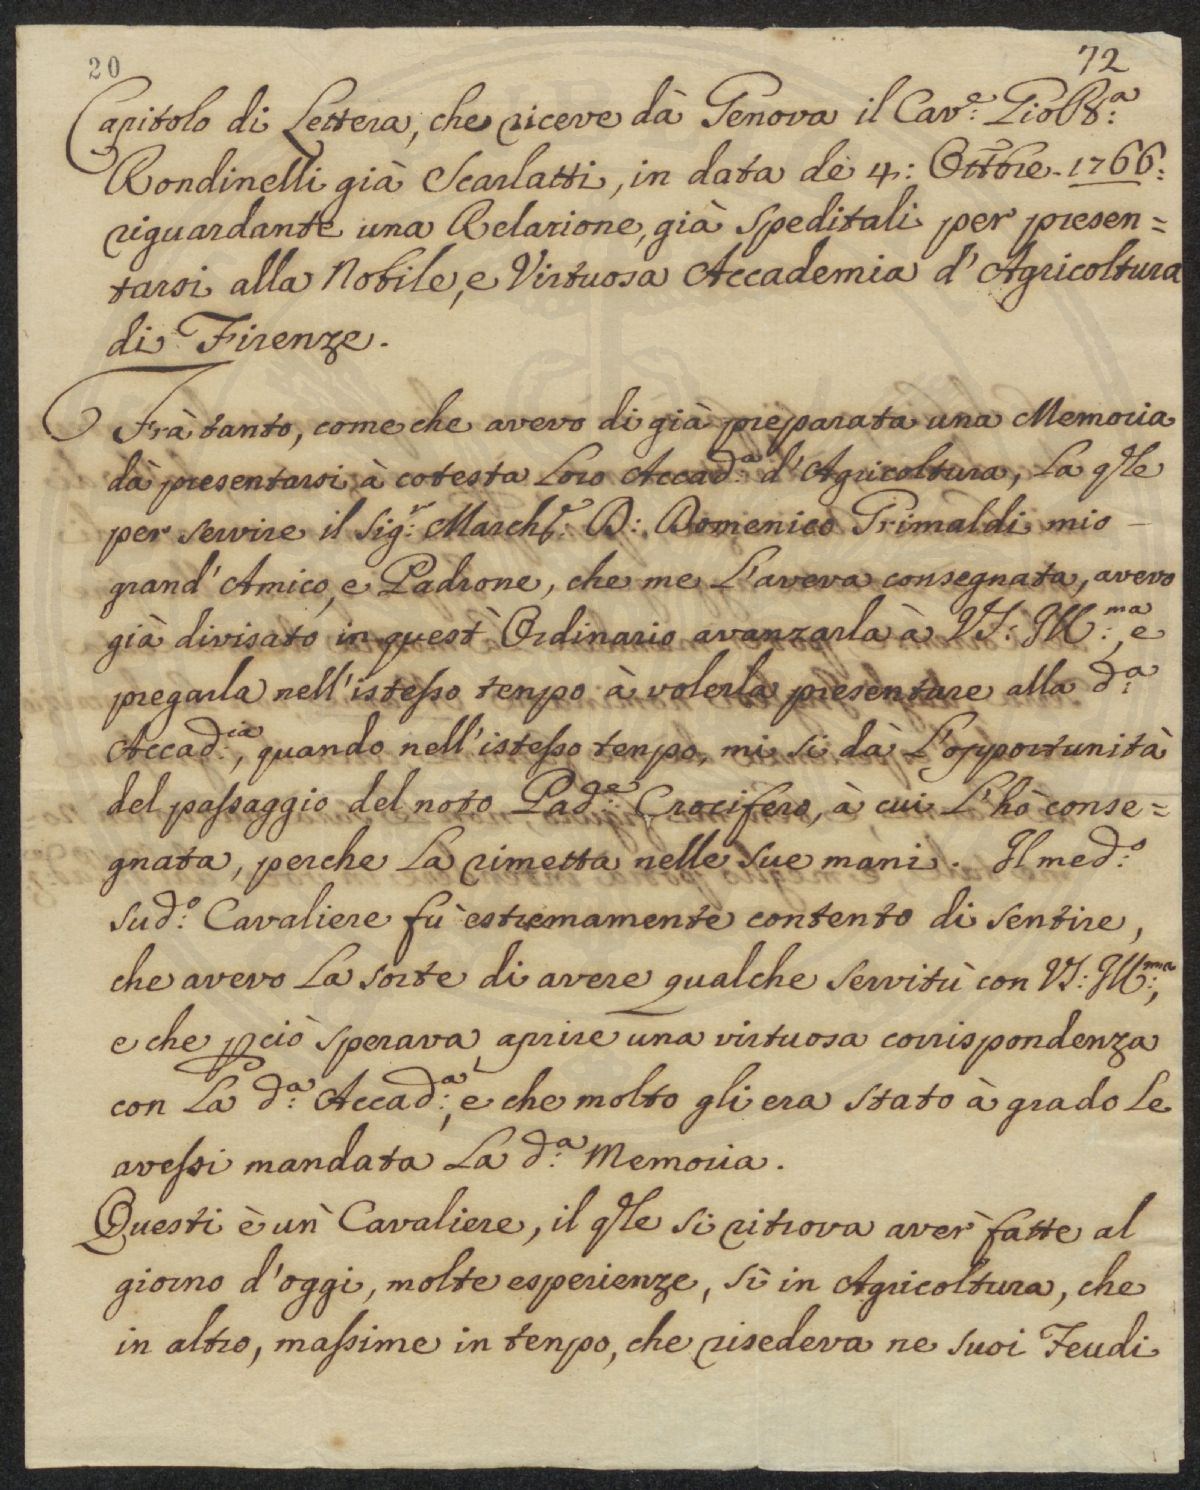 20
72
Capitolo di Lettera, che riceve dà Genova il Cav.e Gio B.a
Rondinelli già Scarlatti, in data de 4: Ottbre 1766:
riguardante una Relazione, già speditali per presen=
tarsi alla Nobile, e Virtuosa Accademia d' Agricoltura
di Firenze.
Frà tanto, come che avevo di già preparata una Memoria
dà presentarsi à cotesta Loro Accad.a d' Agricoltura, La qle
per servire il Sig.r March.e D: Domenico Grimaldi mio
grand' Amico, e Padrone, che me L'aveva consegnata, avevo
già divisato in quest' Ordinario avanzarla à VS: Ill:ma, e
pregarla nell'istesso tenpo à volerla presentare alla d.a
Accad:ia, quando nell'istesso tenpo, mi si dà L'opportunità
del passaggio del noto Pad.e Crocifero, à cui L'hò conse=
gnata, perche La rimetta nelle sue mani. Il med.o
sud.o Cavaliere fù estremamente contento di sentire,
che avevo La sorte di avere qualche servitù con VS: Ill:ma,
e che pciò sperava aprire una virtuosa corrispondenza
con La d.a Accad:a, e che molto gli era stato à grado Le
avessi mandata La d.a Memoria.
Questi è un' Cavaliere, il qle si ritrova aver' fatte al
giorno d'oggi, molte esperienze, sì in Agricoltura, che
in altro, massime in tenpo, che risedeva ne suoi Feudi